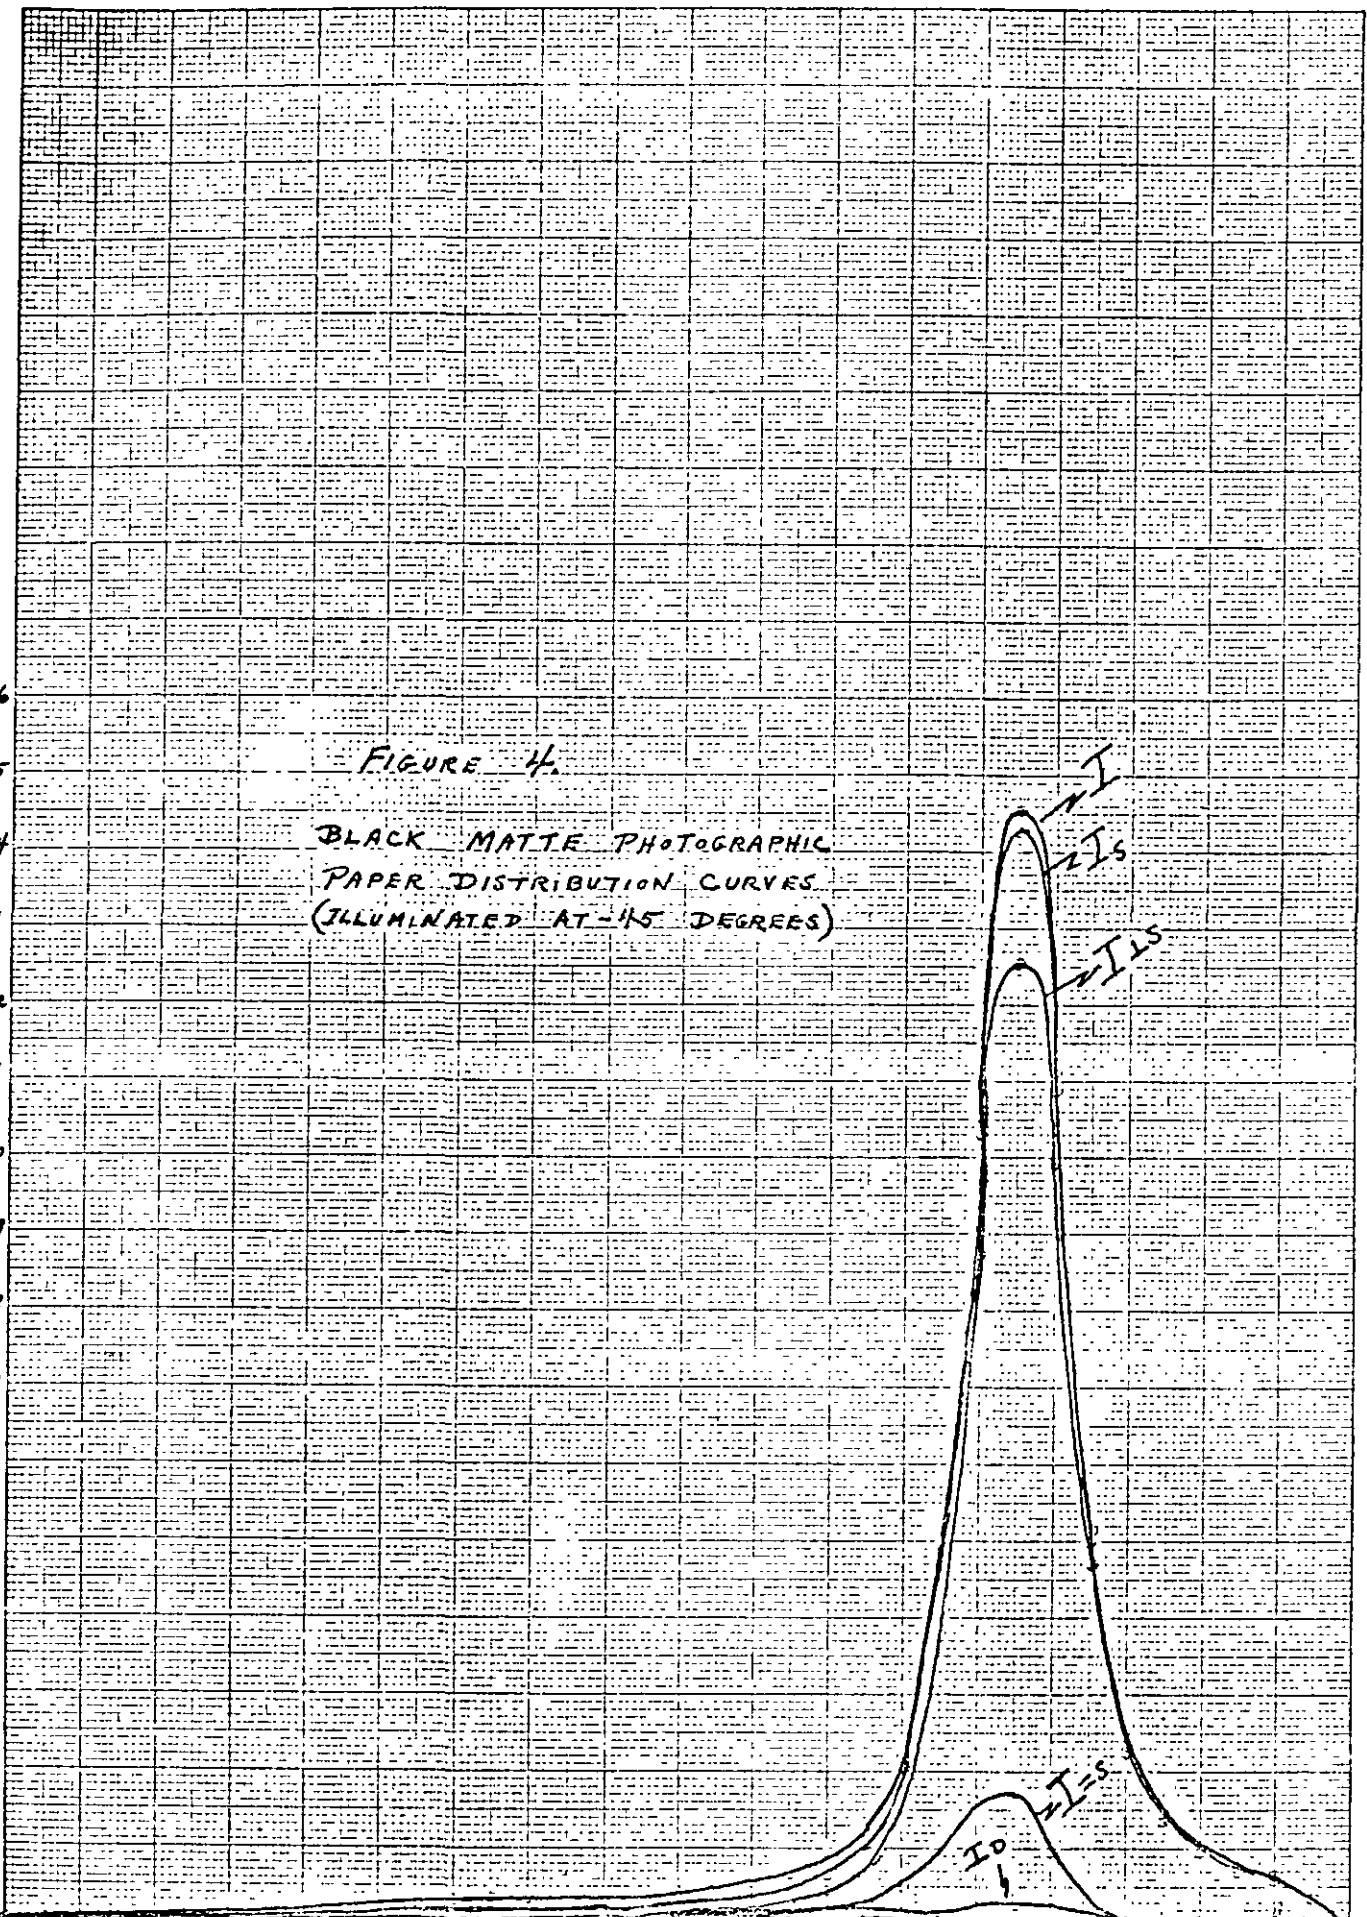 6
5
4
FIGURE 4.
BLACK MATTE PHOTOGRAPHIC
PAPER DISTRIBUTION CURVES
(ILLUMINATED AT -45 DEGREES)
I
Is
I⊥s
I=s
ID